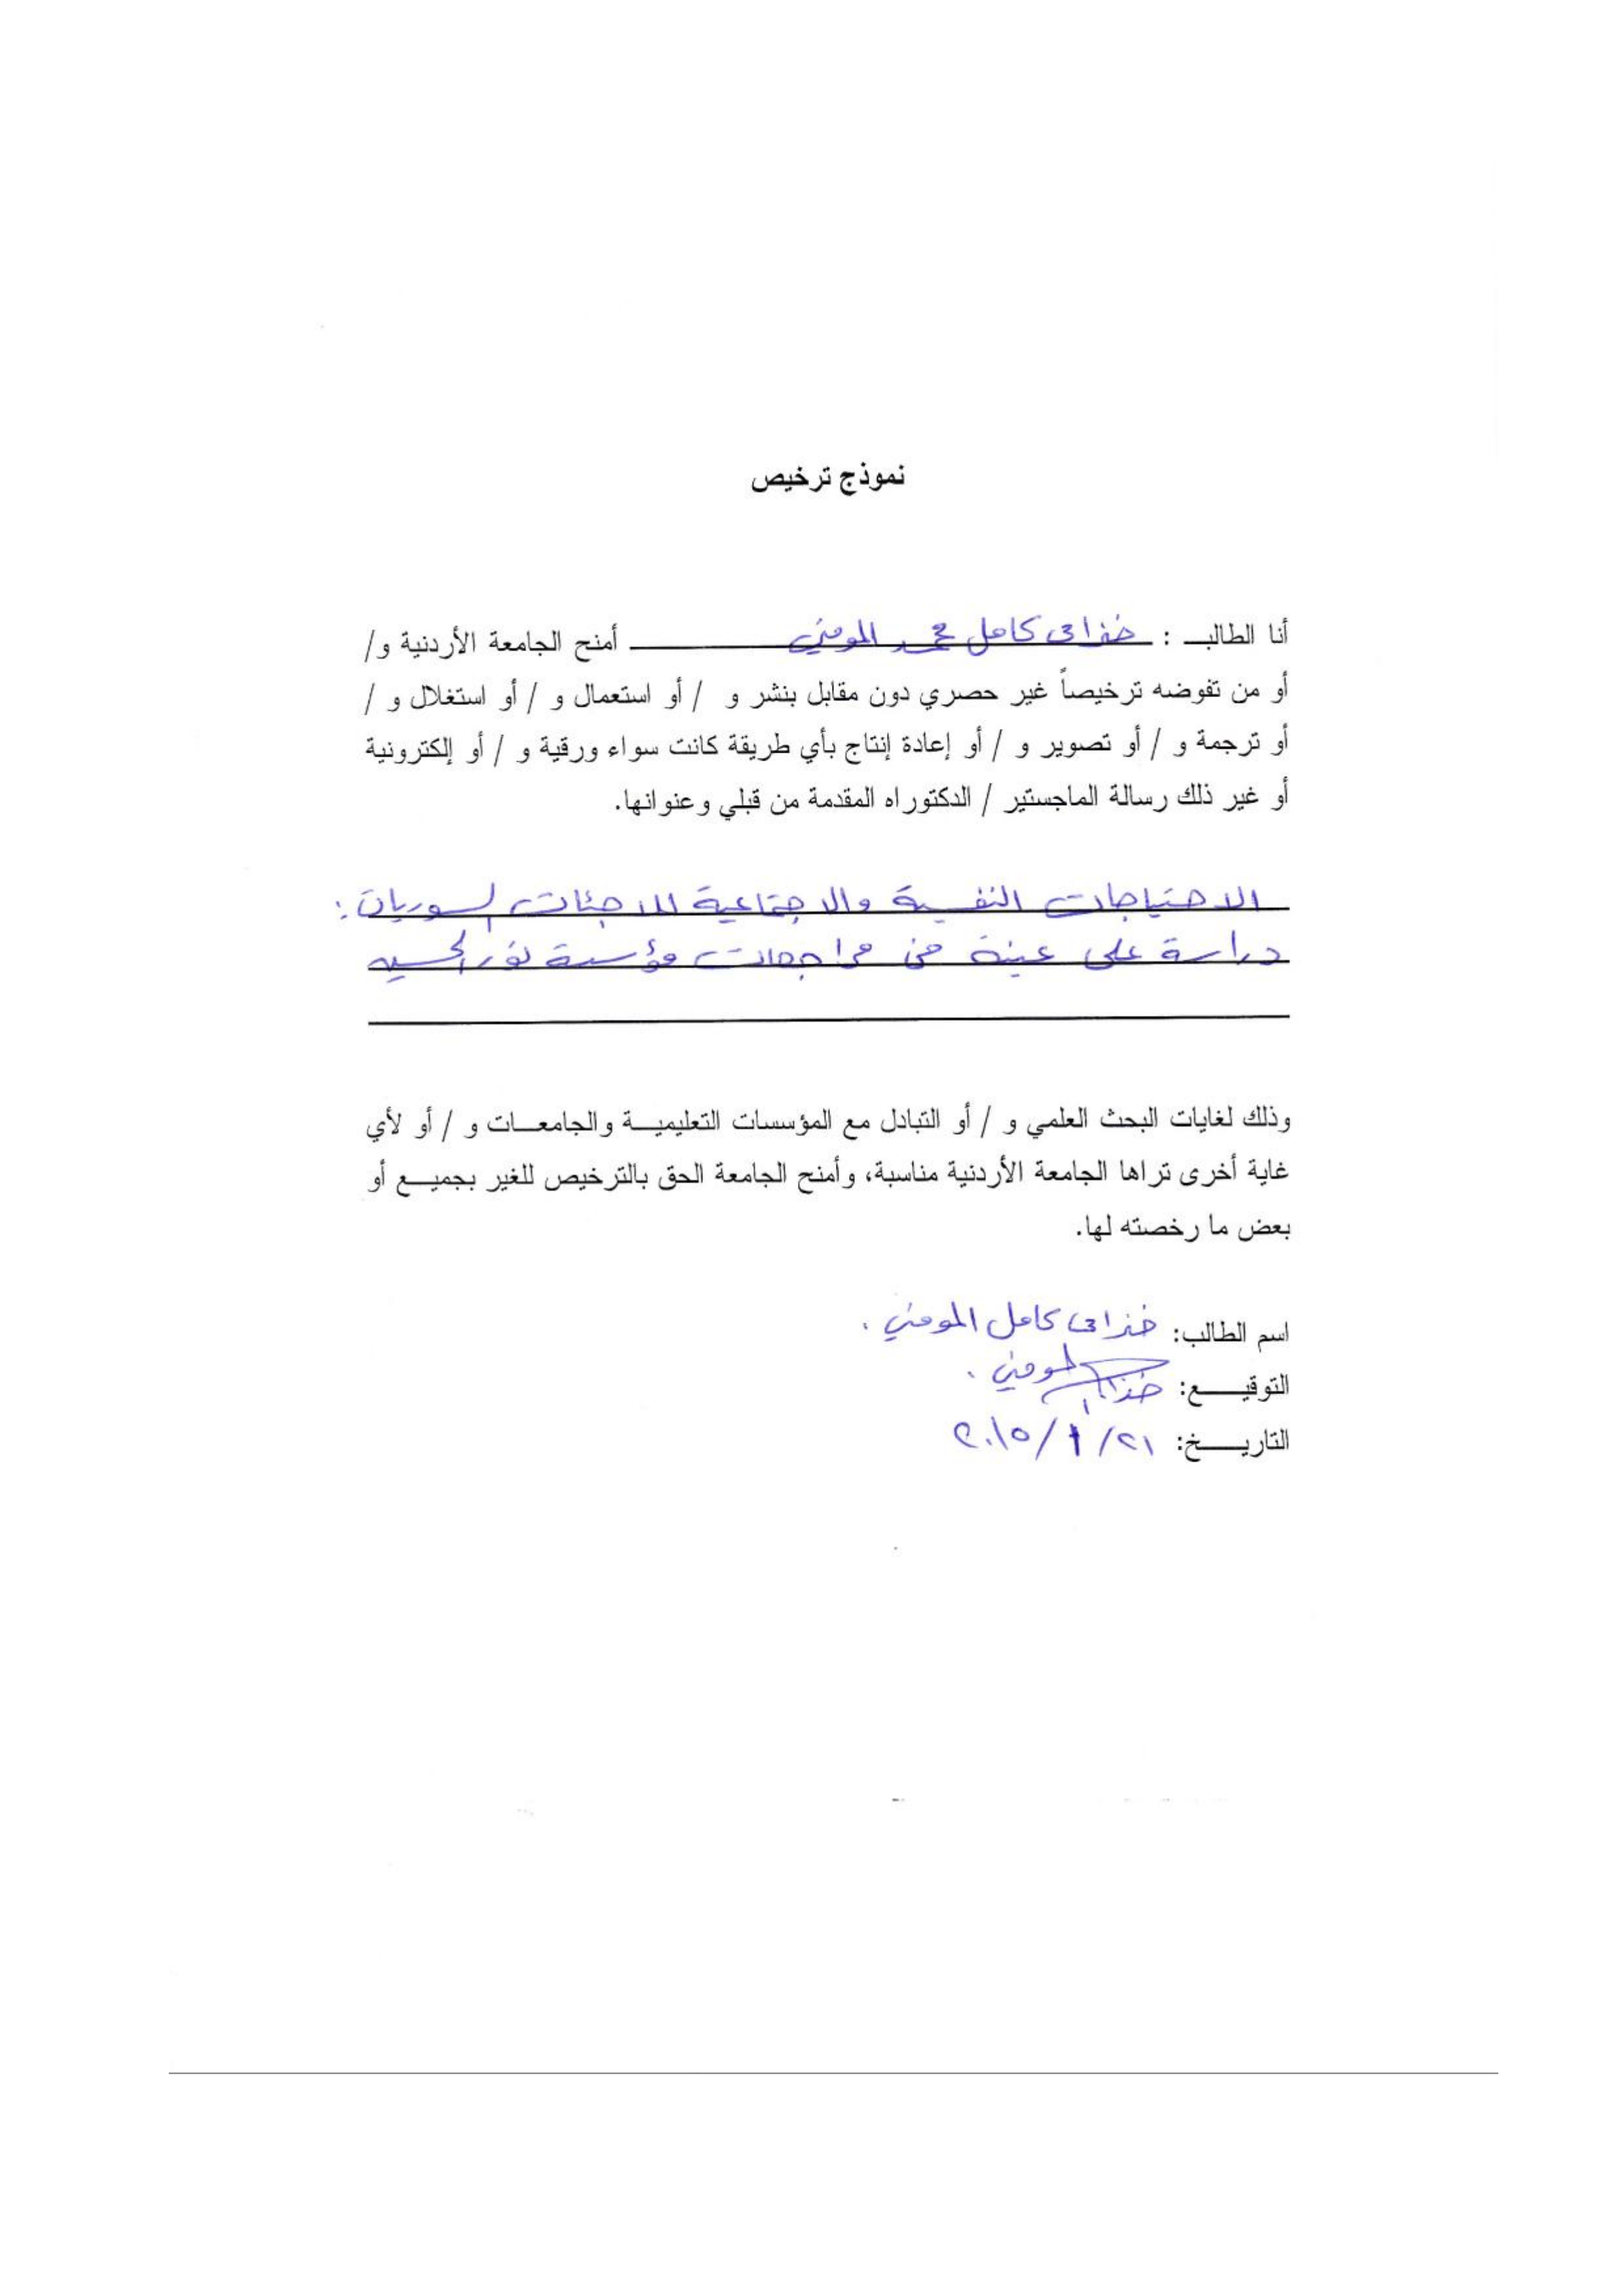 نموذج ترخيص
أنا الطالب : خزامى كامل محمد المومني أمنح الجامعة الأردنية و/
أو من تفوضه ترخيصاً غير حصري دون مقابل بنشر و / أو استعمال و / أو استغلال و /
أو ترجمة و / أو تصوير و / أو إعادة إنتاج بأي طريقة كانت سواء ورقية و / أو إلكترونية
أو غير ذلك رسالة الماجستير / الدكتوراه المقدمة من قبلي وعنوانها.
الاحتياجات النفسية والاجتماعية للاجئات السوريات:
دراسة على عينة من مراجعات مؤسسة نور الحسين
وذلك لغايات البحث العلمي و / أو التبادل مع المؤسسات التعليمية والجامعات و / أو لأي
غاية أخرى تراها الجامعة الأردنية مناسبة، وأمنح الجامعة الحق بالترخيص للغير بجميع أو
بعض ما رخصته لها.
اسم الطالب: خزامى كامل المومني .
التوقيع: خزامى المومني .
التاريخ: ٢١/ ١ /٢٠١٥